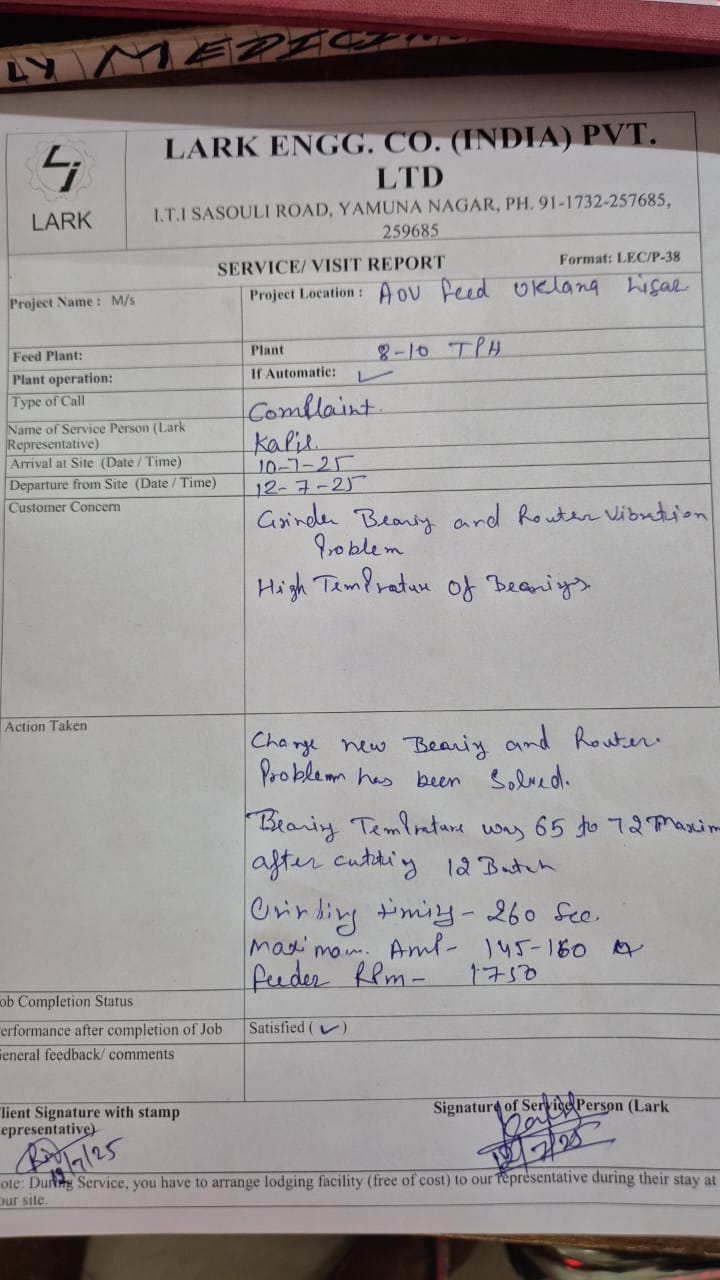 LY MEDICI
LARK
LARK ENGG. CO. (INDIA) PVT.
LTD
I.T.I SASOULI ROAD, YAMUNA NAGAR, PH. 91-1732-257685,
259685
SERVICE/ VISIT REPORT
Format: LEC/P-38
Project Name : M/s
Project Location : AOV feed Uklana Hisar
Feed Plant:
Plant 8-10 TPH
Plant operation:
If Automatic: ✓
Type of Call
Complaint.
Name of Service Person (Lark
Representative)
Kapil
Arrival at Site (Date / Time)
10-7-25
Departure from Site (Date / Time)
12-7-25
Customer Concern
Grinder Bearing and Router Vibration
Problem
High Temprature of Bearings.
Action Taken
Change new Bearing and Router.
Problem has been Solved.
Bearing Temprature was 65 to 72 Maxim
after cutting 12 Batch
Grinding timing - 260 Sec.
Maximam. Amp - 145-160 A
feeder RPm - 1750
ob Completion Status
erformance after completion of Job
Satisfied ( ✓ )
eneral feedback/ comments
lient Signature with stamp
epresentative)
12/7/25
Signature of Service Person (Lark
12/7/25
ote: During Service, you have to arrange lodging facility (free of cost) to our representative during their stay at
our site.